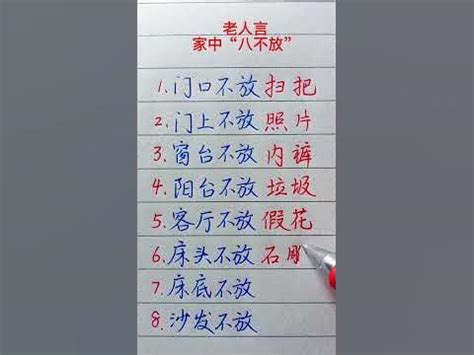 老人言
家中“八不放”
1.门口不放扫把
2.门上不放照片
3.窗台不放内裤
4.阳台不放垃圾
5.客厅不放假花
6.床头不放石雕
7.床底不放
8.沙发不放